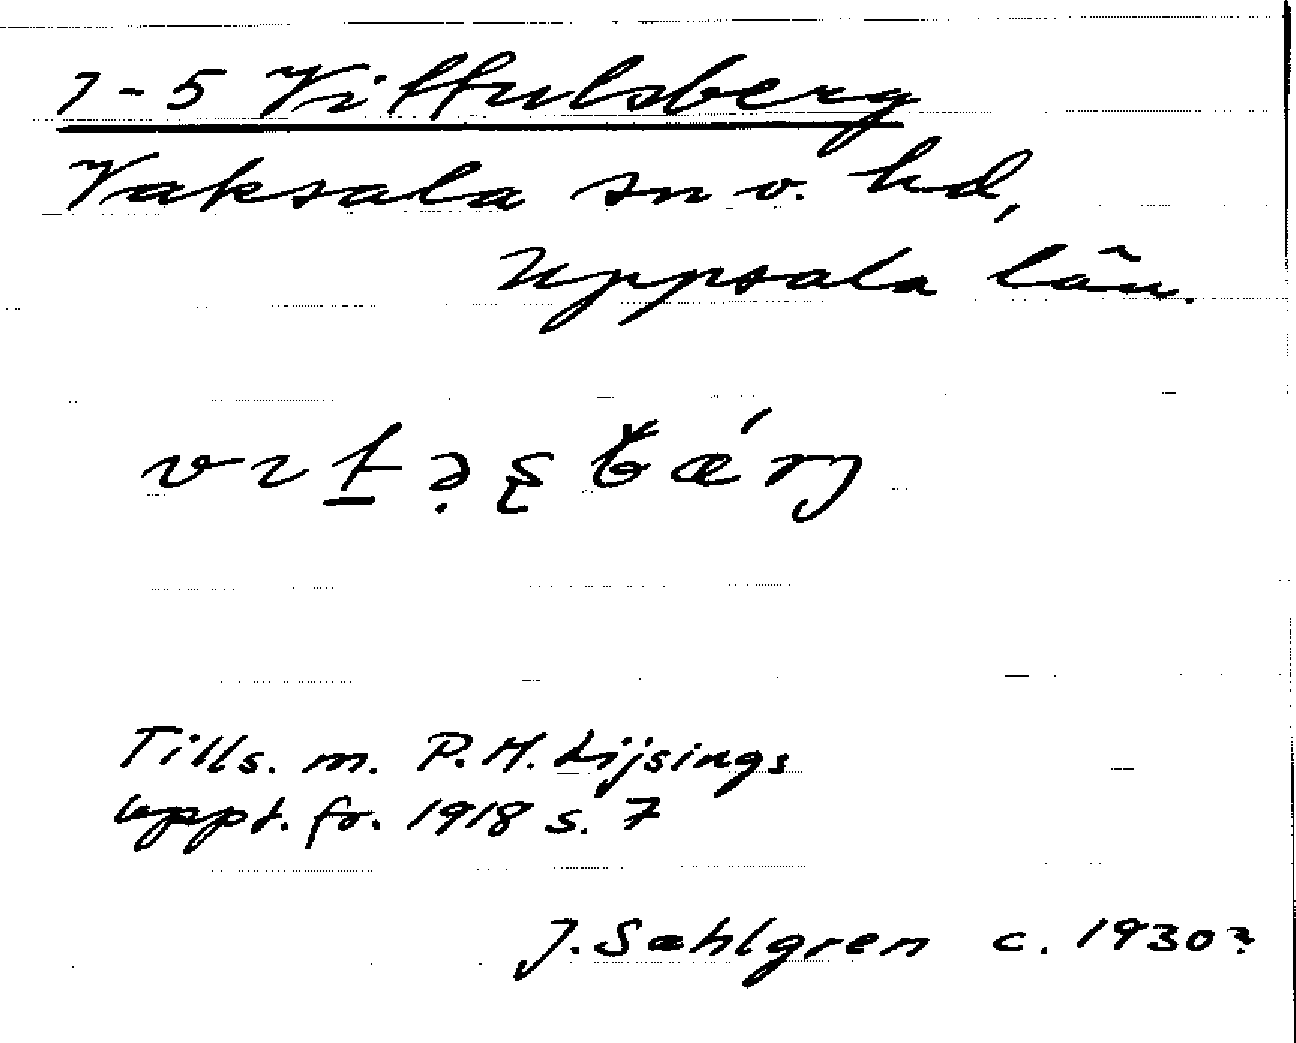 1-5 Vittulsberg
Vaksala sn o. hd,
Uppsala län.
Tills. m. P.H. Lijsings
uppt. fr. 1918 s. 7
J. Sahlgren c. 1930?